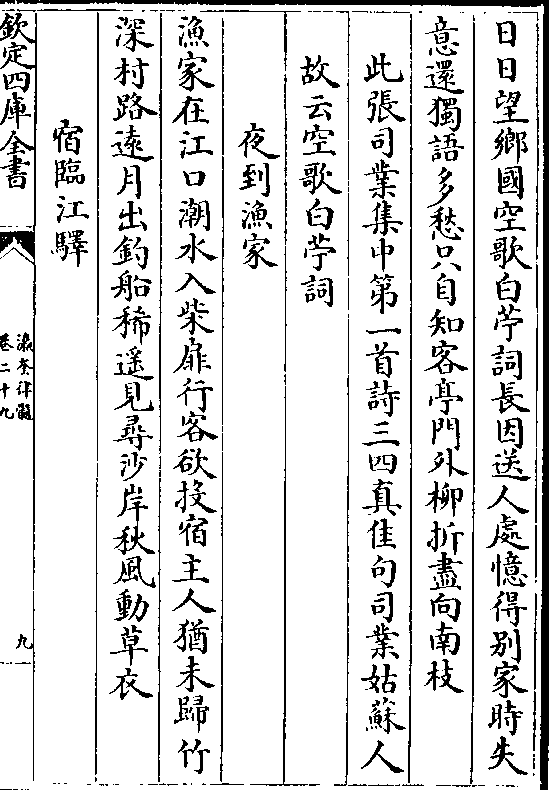 日日望鄉國空歌白苧詞長因送人處憶得別家時失
意還獨語多愁只自知客亭門外柳折盡向南枝
此張司業集中第一首詩三四真佳句司業姑蘇人
故云空歌白苧詞
夜到漁家
漁家在江口潮水入柴扉行客欲投宿主人猶未歸竹
深村路遠月出釣船稀遥見尋沙岸秋風動草衣
宿臨江驛
欽定四庫全書
瀛奎律髓
卷二十九
九